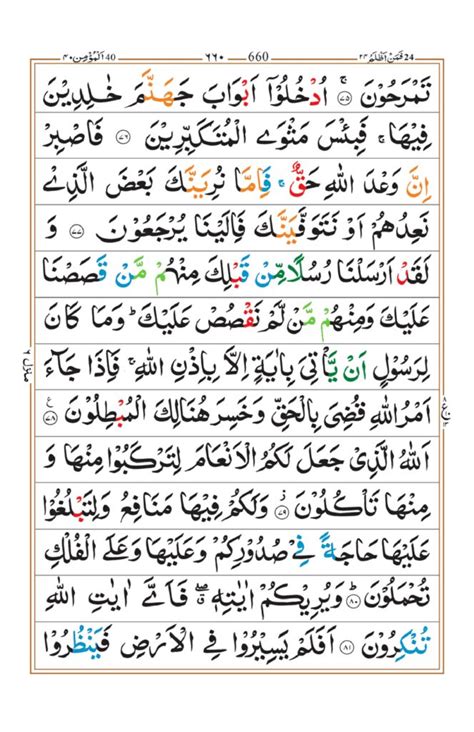 24 فَمَنْ اَظْلَمُ ۲۴ 660 ۶۶۰ 40 اَلْمُؤْمِن ۴۰
تَمْرَحُوْنَ ۚ ﴿۷۵﴾ اُدْخُلُوْۤا اَبْوَابَ جَهَنَّمَ خٰلِدِيْنَ
فِيْهَا ۚ فَبِئْسَ مَثْوَى الْمُتَكَبِّرِيْنَ ﴿۷۶﴾ فَاصْبِرْ
اِنَّ وَعْدَ اللّٰهِ حَقٌّ ۚ فَاِمَّا نُرِيَنَّكَ بَعْضَ الَّذِيْ
نَعِدُهُمْ اَوْ نَتَوَفَّيَنَّكَ فَاِلَيْنَا يُرْجَعُوْنَ ﴿۷۷﴾ وَ
لَقَدْ اَرْسَلْنَا رُسُلًا مِّنْ قَبْلِكَ مِنْهُمْ مَّنْ قَصَصْنَا
عَلَيْكَ وَمِنْهُمْ مَّنْ لَّمْ نَقْصُصْ عَلَيْكَ ؕ وَمَا كَانَ
لِرَسُوْلٍ اَنْ يَّاْتِيَ بِاٰيَةٍ اِلَّا بِاِذْنِ اللّٰهِ ۚ فَاِذَا جَآءَ
اَمْرُ اللّٰهِ قُضِيَ بِالْحَقِّ وَخَسِرَ هُنَالِكَ الْمُبْطِلُوْنَ ﴿۷۸﴾ ع
اَللّٰهُ الَّذِيْ جَعَلَ لَكُمُ الْاَنْعَامَ لِتَرْكَبُوْا مِنْهَا وَ
مِنْهَا تَاْكُلُوْنَ ؗ ﴿۷۹﴾ وَلَكُمْ فِيْهَا مَنَافِعُ وَلِتَبْلُغُوْا
عَلَيْهَا حَاجَةً فِيْ صُدُوْرِكُمْ وَعَلَيْهَا وَعَلَى الْفُلْكِ
تُحْمَلُوْنَ ؕ ﴿۸۰﴾ وَيُرِيْكُمْ اٰيٰتِهٖ ۖ فَاَيَّ اٰيٰتِ اللّٰهِ
تُنْكِرُوْنَ ﴿۸۱﴾ اَفَلَمْ يَسِيْرُوْا فِي الْاَرْضِ فَيَنْظُرُوْا
منزل ۶